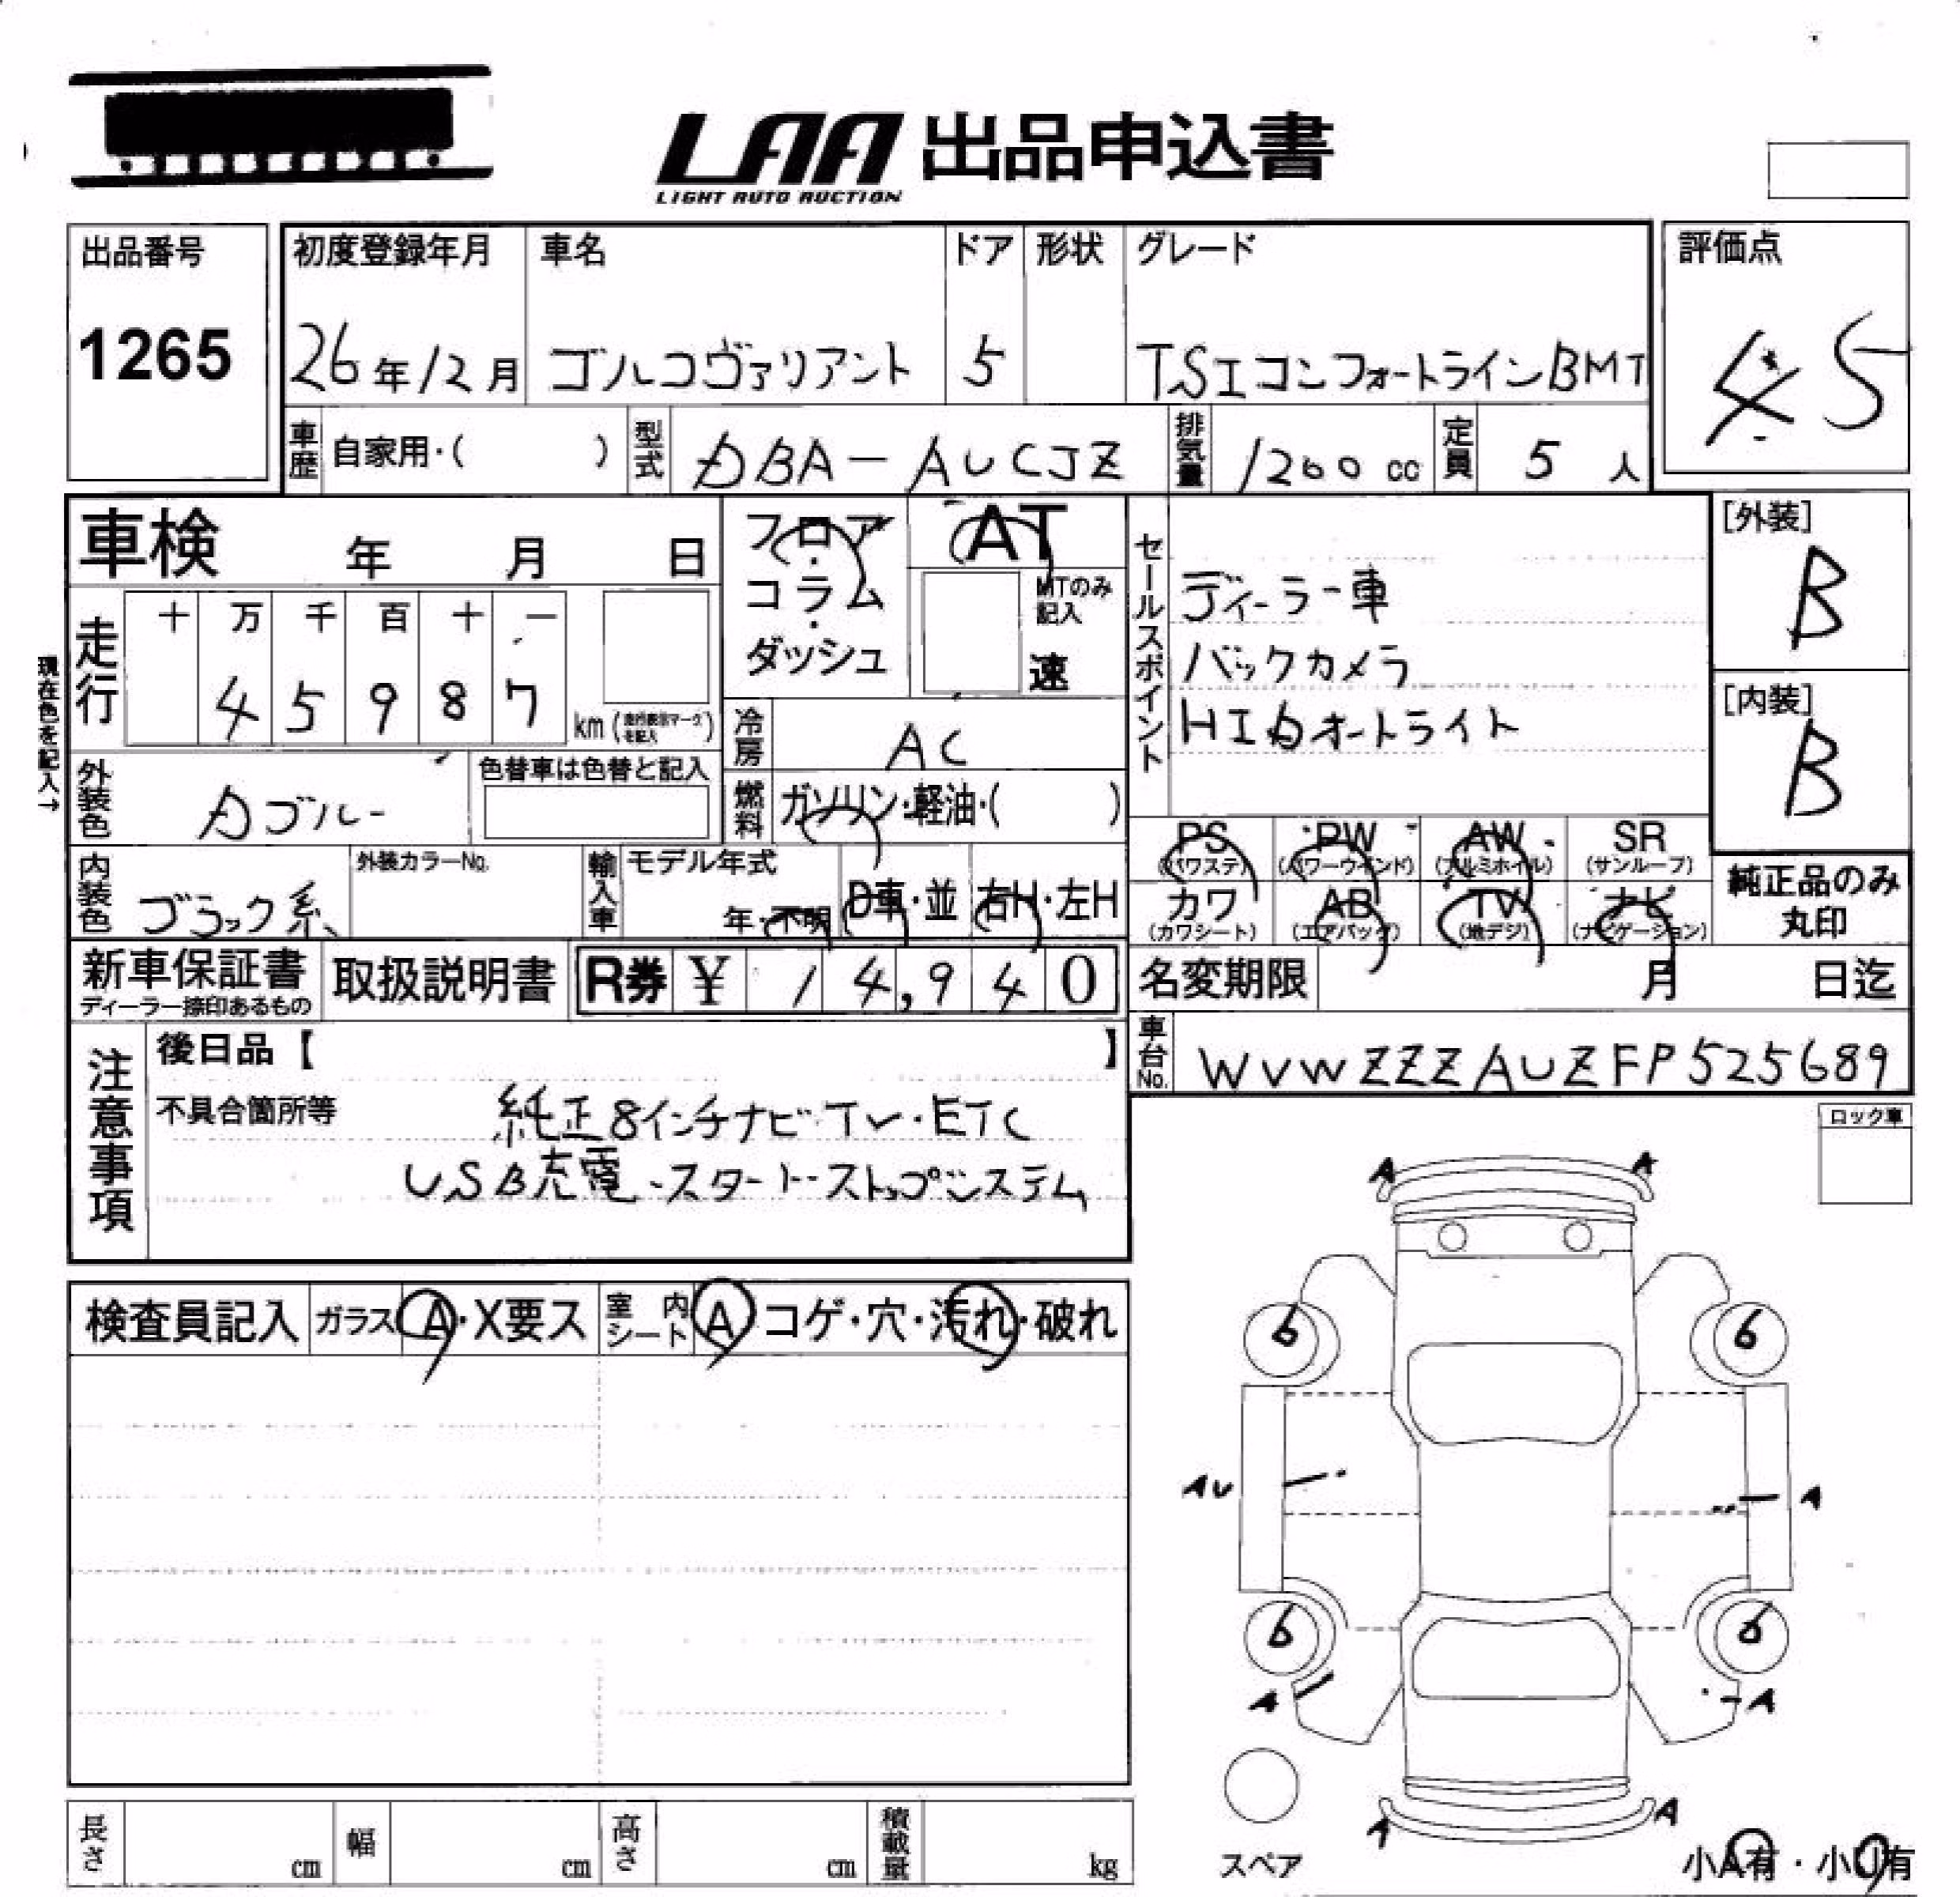 LAA 出品申込書
LIGHT AUTO AUCTION
出品番号 初度登録年月 車名 ドア 形状 グレード 評価点
1265 26年12月 ゴルフヴァリアント 5 TSIコンフォートラインBMT 4.5
車歴 自家用・( ) 型式 DBA-AUCJZ 排気量 1200 cc 定員 5 人
車検 年 月 日 フロア・コラム・ダッシュ AT セールスポイント [外装]
MTのみ記入 ディーラー車 B
走行 十 万 千 百 十 一 速 バックカメラ [内装]
4 5 9 8 7 km 冷房 AC HIDオートライト B
現在色を記入→
外装色 Dブルー 色替車は色替と記入 燃料 ガソリン・軽油・( )
PS (パワステ) PW (パワーウインド) AW (アルミホイル) SR (サンルーフ)
内装色 ブラック系 外装カラーNo. 輸入車 モデル年式 年・不明 D車・並 右H・左H
カワ (カワシート) AB (エアバッグ) TV (地デジ) ナビ (ナビゲーション) 純正品のみ丸印
新車保証書 取扱説明書 R券 ¥ 14,940 名変期限 月 日迄
ディーラー捺印あるもの
車台No. WVWZZZAUZFP525689
注意事項 後日品【 】
不具合箇所等 純正8インチナビ・TV・ETC
USB充電・スタートストップシステム
ロック車
検査員記入 ガラス A・X要ス 室内シート A コゲ・穴・汚れ・破れ
A A
6 6
AU A
6 6
A A
A A
スペア 小A有・小U有
長さ cm 幅 cm 高さ cm 積載量 kg